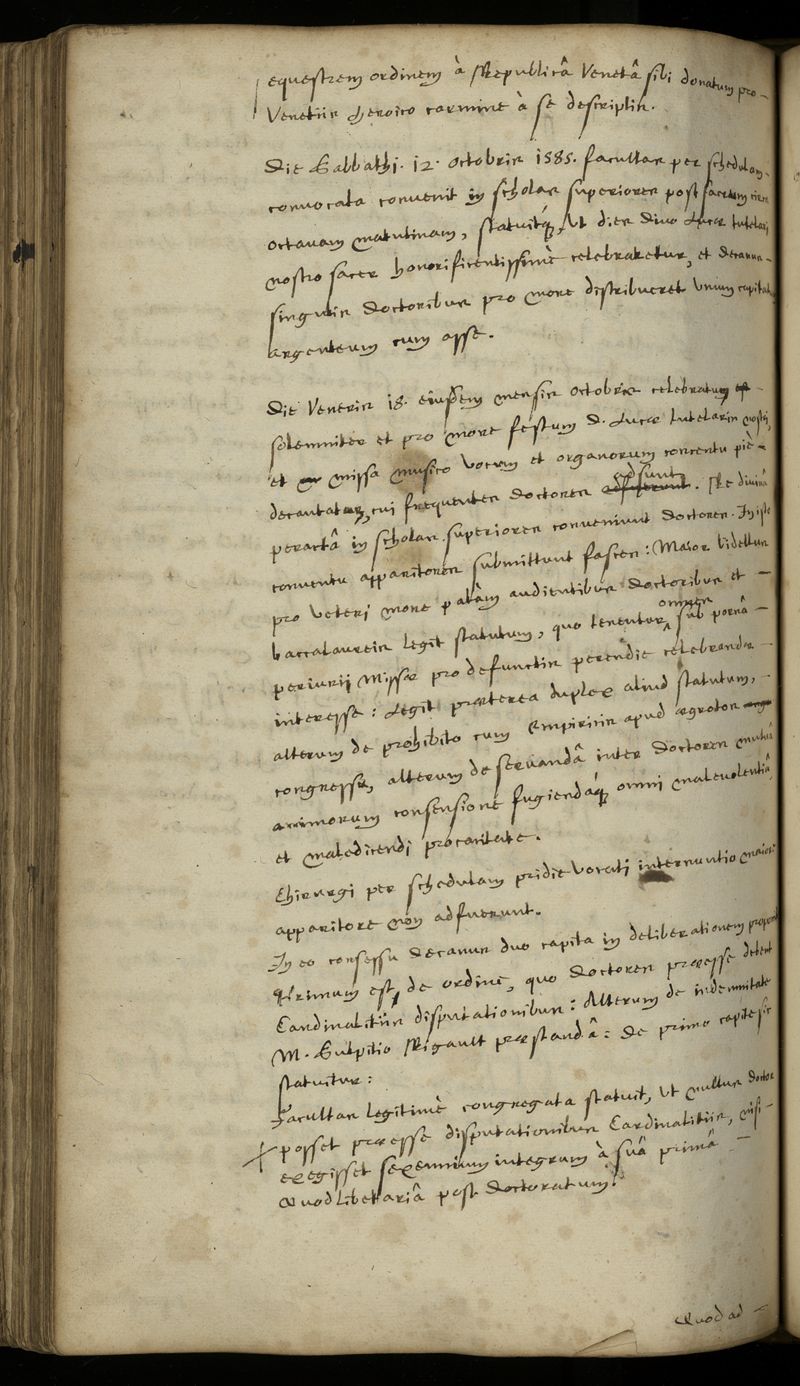 equestrem ordinem à Republicâ Venetâ sibi donatum pro-
Venetiis heroico carmine à se descriptis.
Die Sabbathi. 12. octobris 1585. facultas per schedulam
convocata convenit in scholas superiores post sacrum
octavam matutinam, statuitq́, ut dies Divo Lucæ tutelari
nostro sacer honorificentissimè celebraretur, et decanus
singulis Doctoribus pro more distribueret unum capitat
argenteum cum asse.
Die Veneris 18. eiusdem mensis octobris celebratum est
solemniter et pro more festum D. Lucæ tutelaris nostri,
et missa musico vocum et organorum concentu piè
decantata, cui frequentes Doctores adsunt. Re divinâ
peractâ in scholas superiores conveniunt Doctores. In isto
conventu apparitores submittunt fasces: Maior bidellus
pro veteri more palàm audientibus Doctoribus et
baccalaureis legit statutum, quo tenentur omnes sub poenâ
periurii Missæ pro defunctis perendie celebrandæ
interesse: Legit præterea duplex aliud statutum,
alterum de prohibito cum Empiricis apud ægrotos
congressu, alterum de servandâ inter Doctores mutuâ
animorum consensione fugiendaq́ omni malevolentiâ
et maledicendi procacitate.
Chirurgi per schedulam pridie vocati internuntio maiori
apparitore non adfuerunt.
In eo consessu Decanus duo capita in deliberationem proposuit
Primum est, de ordine, quo Doctores præesse debent
Cardinalitiis disputationibus: Alterum de indemnitate
M. Sulpitio Rigault præstandâ: De primo capite sic
statuitur:
Facultas legitimè congregata statuit, ut nullus Doctor
posset præesse disputationibus Cardinalitiis, nisi
exegisset sexennium integrum à suâ primâ
Quodlibetariâ post Doctoratum.
Quod ad